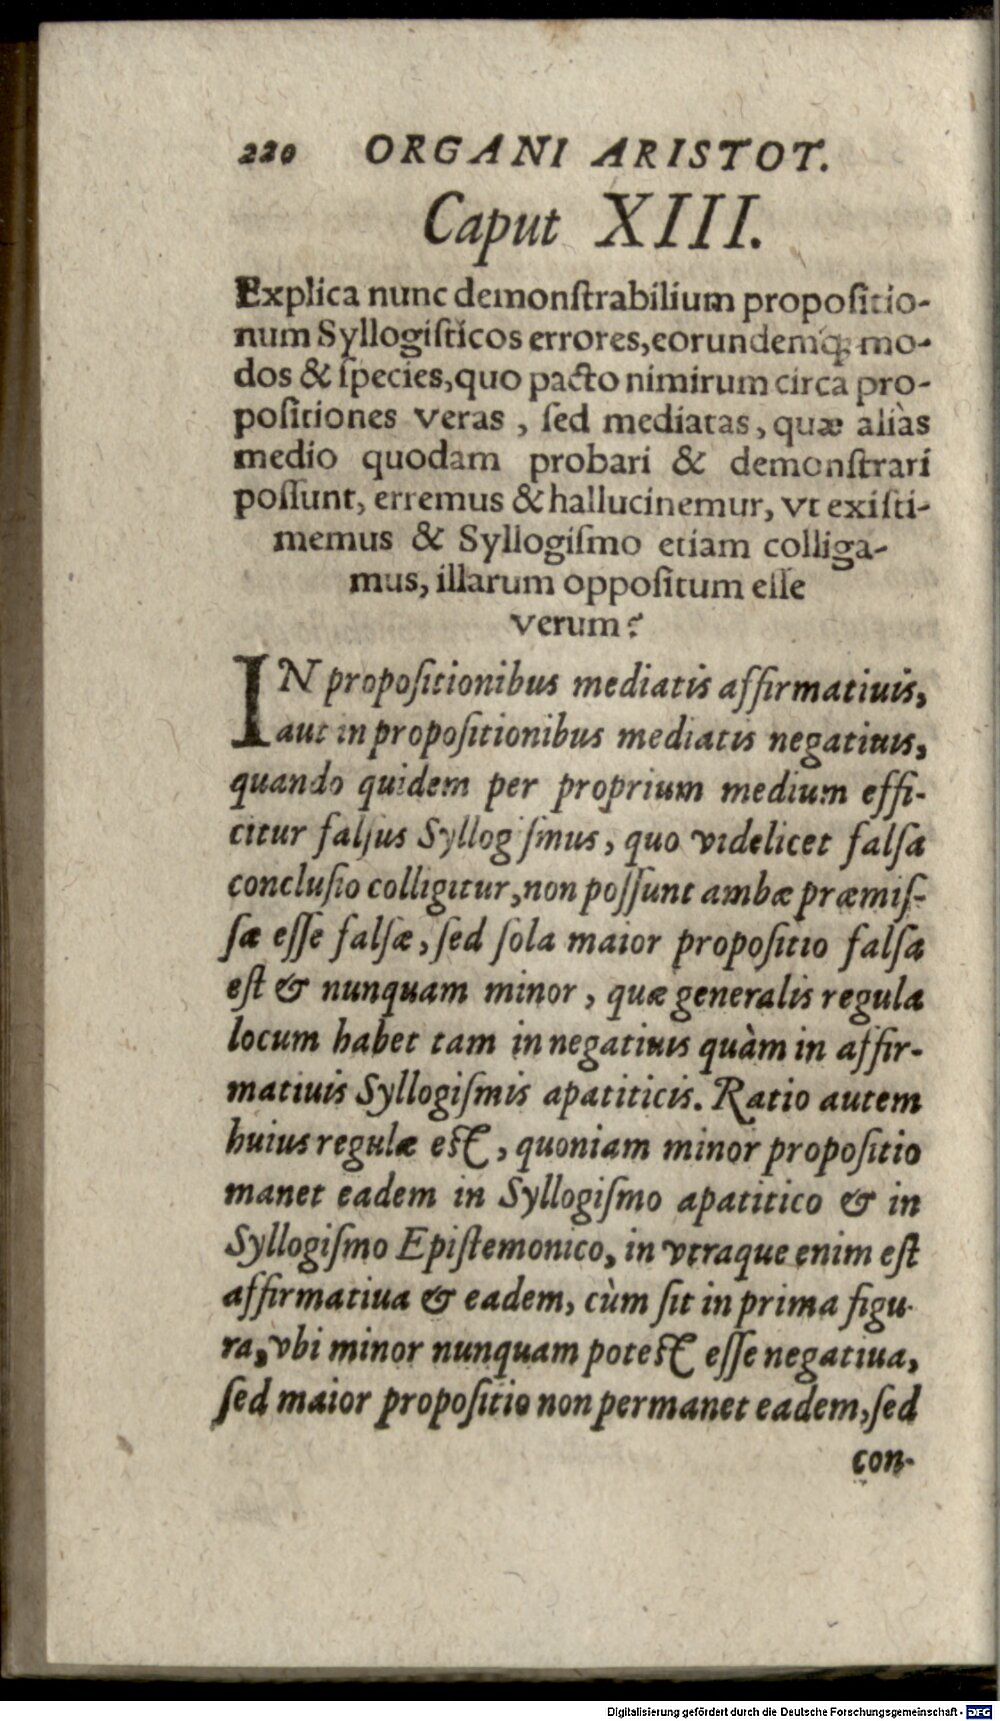 220 ORGANI ARISTOT.
Caput XIII.
Explica nunc demonſtrabilium propoſitio-
num Syllogiſticos errores, eorundemq́; mo-
dos & ſpecies, quo pacto nimirum circa pro-
poſitiones veras, ſed mediatas, quæ aliàs
medio quodam probari & demonſtrari
poſſunt, erremus & hallucinemur, vt exiſti-
memus & Syllogiſmo etiam colliga-
mus, illarum oppoſitum eſſe
verum?
IN propoſitionibus mediatis affirmatiuis,
aut in propoſitionibus mediatis negatiuis,
quando quidem per proprium medium effi-
citur falſus Syllogiſmus, quo videlicet falſa
concluſio colligitur, non poſſunt ambæ præmiſ-
ſæ eſſe falſæ, ſed ſola maior propoſitio falſa
eſt & nunquam minor, quæ generalis regula
locum habet tam in negatiuis quàm in affir-
matiuis Syllogiſmis apatiticis. Ratio autem
huius regulæ eſt, quoniam minor propoſitio
manet eadem in Syllogiſmo apatitico & in
Syllogiſmo Epiſtemonico, in vtraque enim eſt
affirmatiua & eadem, cùm ſit in prima figu-
ra, vbi minor nunquam poteſt eſſe negatiua,
ſed maior propoſitio non permanet eadem, ſed
con-
Digitalisierung gefördert durch die Deutsche Forschungsgemeinschaft - DFG